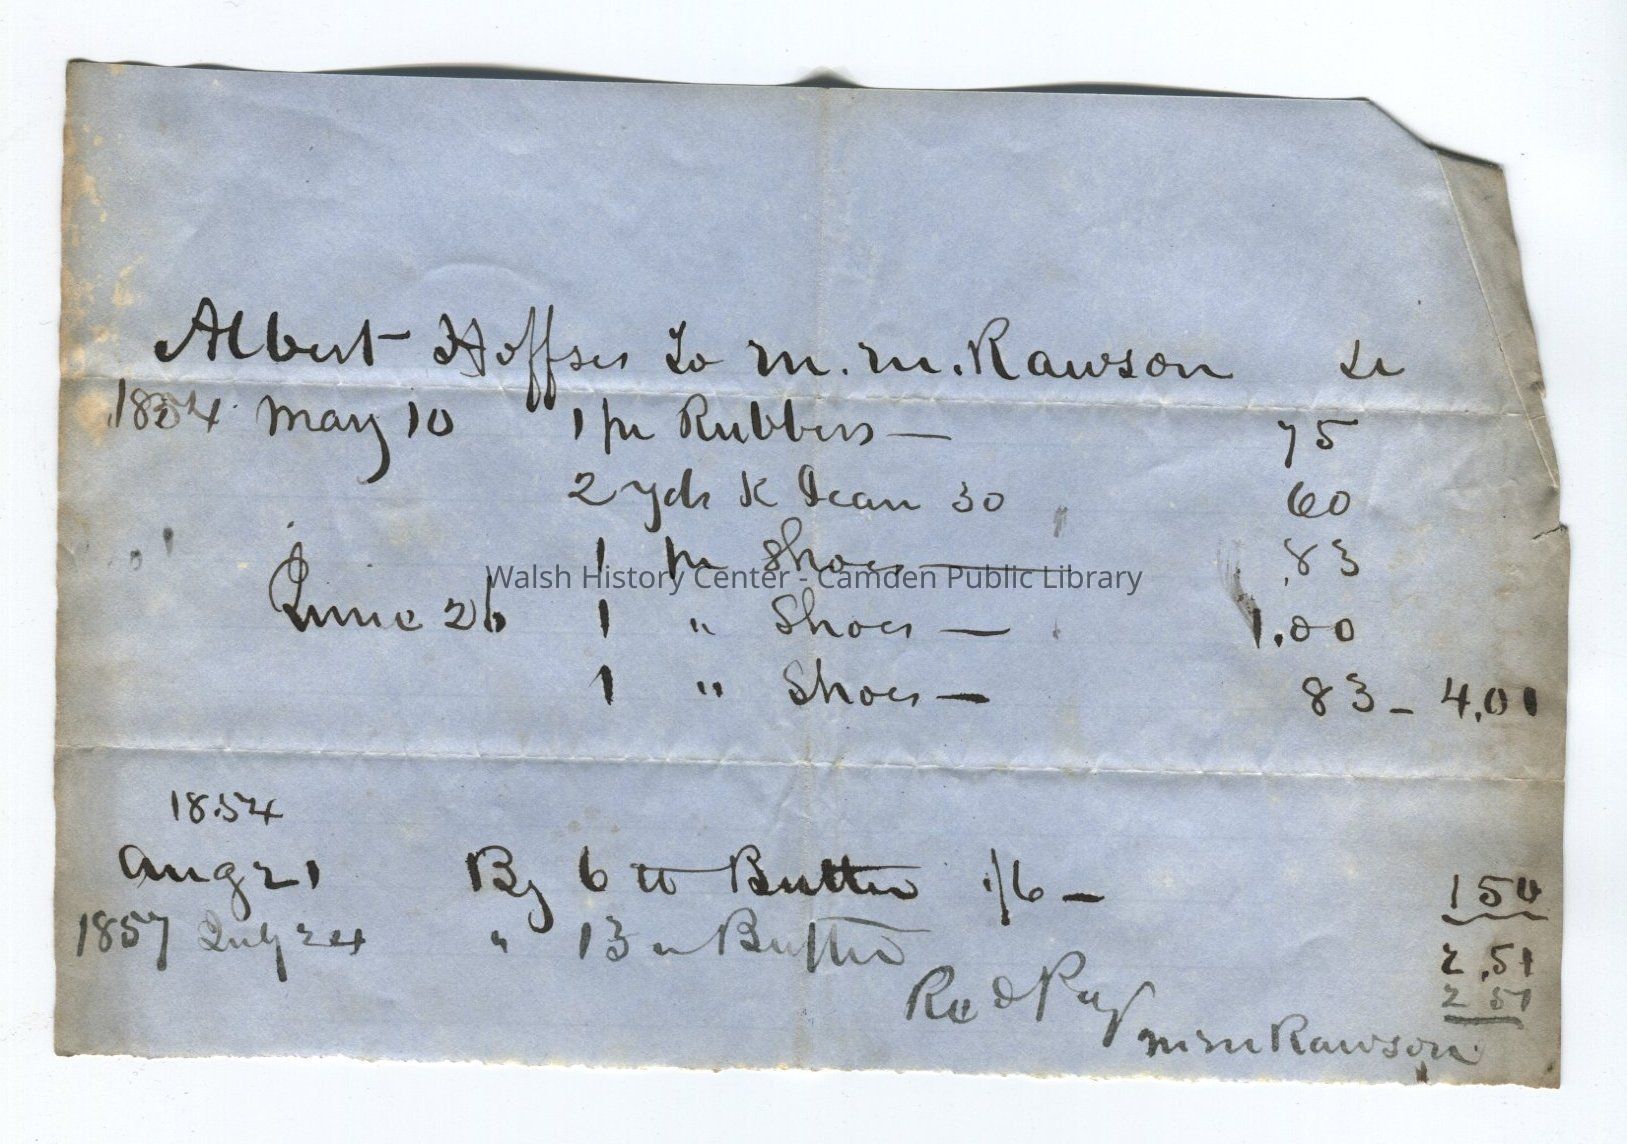 Albert Hoffses To M. M. Rawson Dr
1854 May 10 1 pr Rubbers — 75
2 yds K Jean 30 60
1 pr Shoes — .83
Walsh History Center - Camden Public Library
June 26 1 " Shoes — 1.00
1 " Shoes — 83 - 4.01
1854
Aug 21 By 6 lb Butter 1/6 — 150
1857 July 24 " 13 " Butter 2.51
2 51
Recd Pay
M M Rawson